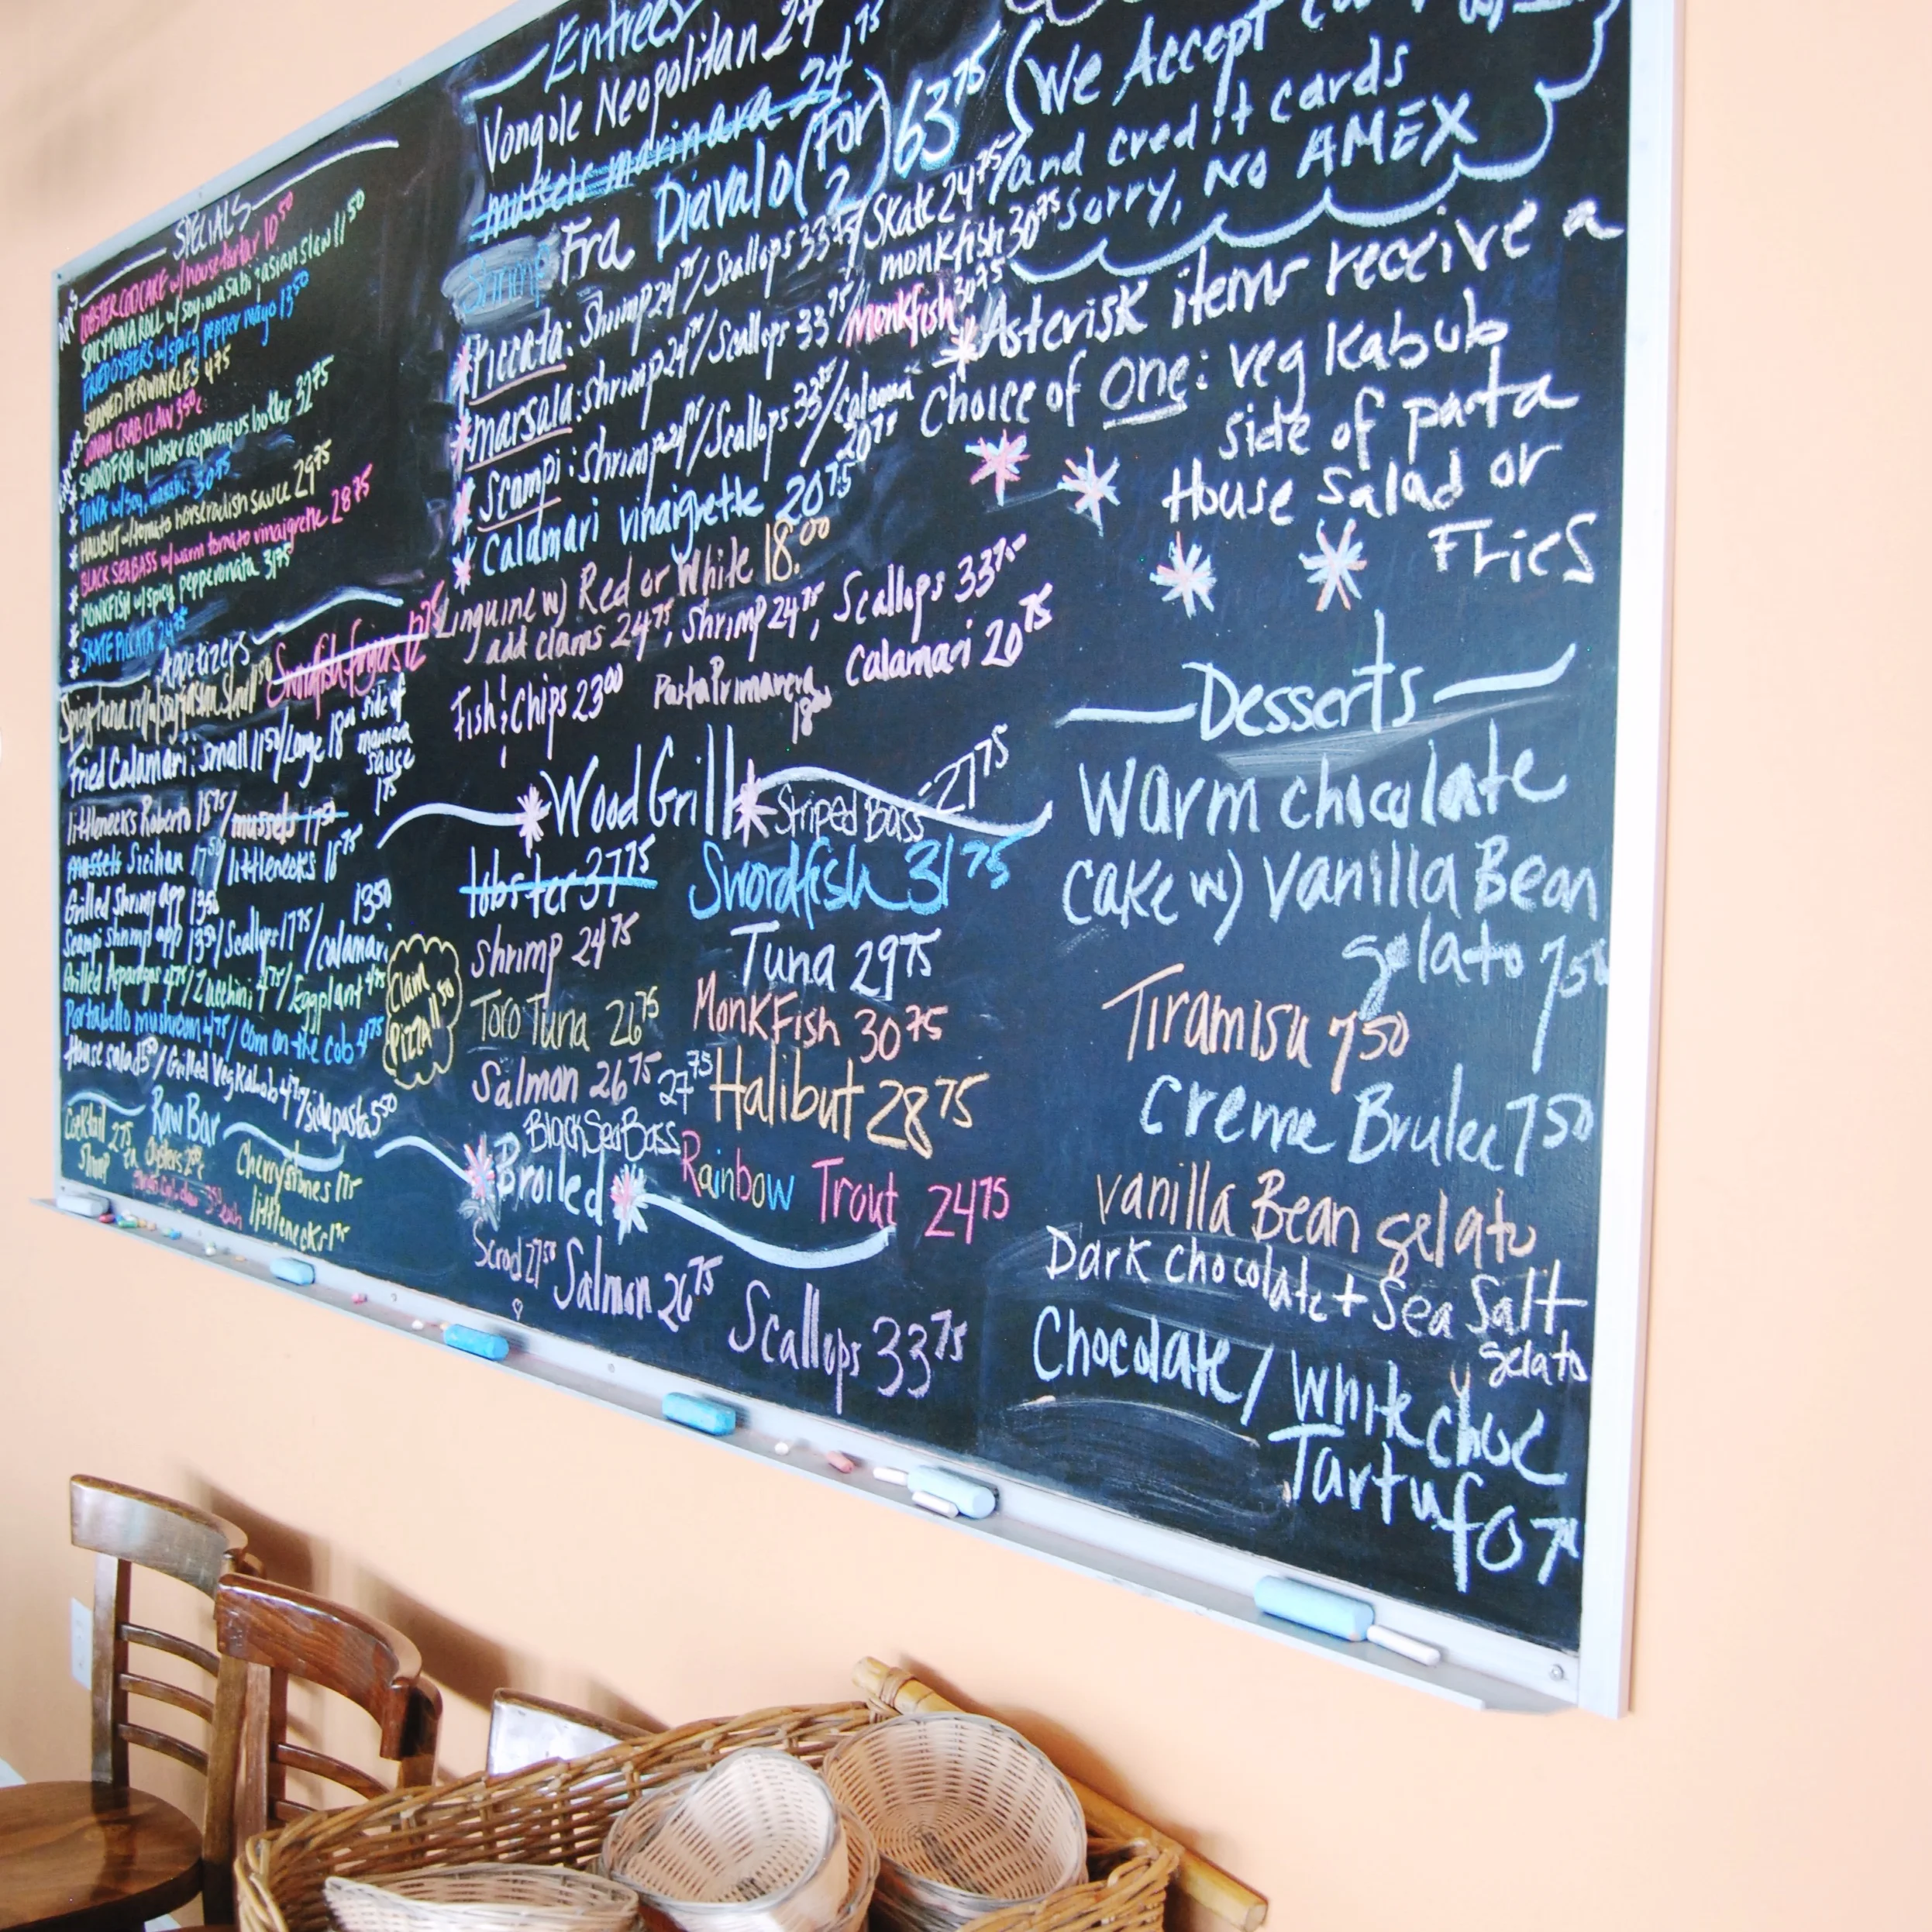 SPECIALS
APPS
LOBSTER COD CAKE w/ house tartar 10 50
SPICY TUNA ROLL w/ soy, wasabi, asian slaw 11 50
FRIED OYSTERS w/ spicy pepper mayo 13 50
STEAMED PERIWINKLES 4 75
JONAH CRAB CLAW 3 50
* SWORDFISH w/ lobster asparagus butter 32 75
* TUNA w/ soy, wasabi 30 75
* HALIBUT w/ tomato horseradish sauce 29 75
* BLACK SEA BASS w/ warm tomato vinaigrette 28 75
* MONKFISH w/ spicy pepperonata 31 75
* SKATE PICCATA 24 75
Appetizers
Swordfish fingers 12 75
Spicy tuna roll w/ soy,
Fried Calamari: small 11 50/Large 18 side of
sauce
1 75
littlenecks Roberto 18 75/mussels 17 50
mussels Sicilian 17 50/littlenecks 18 75
Grilled Shrimp app 13 50
Scampi shrimp app 13 50/Scallops 17 75/calamari 13 50
Grilled Asparagas 4 75/Zucchini 4 75/Eggplant 4 75
Portabello mushroom 4 75/Corn on the cob 4 75
House salad 5 50/Grilled Veg Kabob 4 75/side pasta 5 50
Clam 11 50
PIZZA
Raw Bar
Cocktail 2 75
Shrimp ea
Oysters
3 50 each
Cherrystones 1 75
littlenecks 1
Entrees
Vongole Neopolitan 24 75
mussels marinara 24
Shrimp Fra Diavalo (for 2) 63 75
* Piccata: Shrimp 24 75/Scallops 33 75/Skate 24 75/
monkfish 30 75
* marsala: Shrimp 24 75/Scallops 33 75/monkfish 30 75
* Scampi: Shrimp 24 75/Scallops 33 75/calamari 20 75
* Calamari vinaigrette 20 75
Linguine w) Red or White 18.00
add clams 24 75, Shrimp 24 75, Scallops 33 75
Fish & Chips 23 00 Pasta Primavera 18 00 Calamari 20 75
* Wood Grill *
Striped Bass 27 75
lobster 37 75 Swordfish 31 75
Shrimp 24 75 Tuna 29 75
Toro Tuna 26 75 MonkFish 30 75
Salmon 26 75 Halibut 28 75
Black Sea Bass 27 75
Rainbow Trout 24 75
* Broiled *
Scrod 27 50 Salmon 26 75 Scallops 33 75
(We Accept
and credit cards
Sorry, No AMEX
* Asterisk items receive a
Choice of One: veg Kabub
side of pasta
House Salad or
FRIES
Desserts
Warm chocolate
Cake w) Vanilla Bean
gelato 7 50
Tiramisu 7 50
Creme Brulee 7 50
vanilla Bean gelato
Dark chocolate + Sea Salt
gelato
Chocolate/White choc
Tartufo